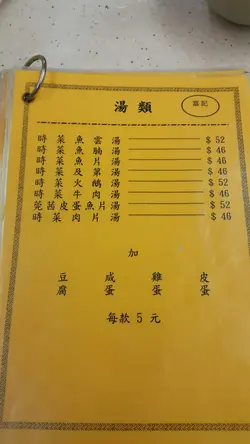 湯類 富記
時菜魚雲湯 $52
時菜魚腩湯 $46
時菜魚片湯 $46
時菜及第湯 $46
時菜火鵝湯 $52
時菜牛肉湯 $46
芫茜皮蛋魚片湯 $52
時菜肉片湯 $46
加
豆腐 咸蛋 雞蛋 皮蛋
每款5元